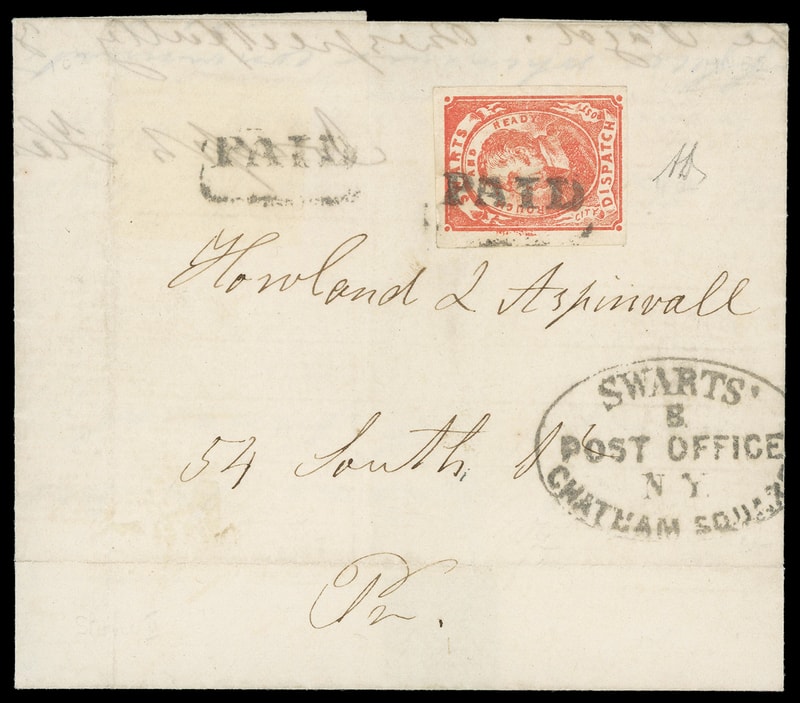 PAID
SWARTS
POST
AND READY
DISPATCH
PAID
PAID
Howland & Aspinwall
54 South St
Pr.
SWARTS'
B
POST OFFICE
N Y
CHATHAM SQUARE